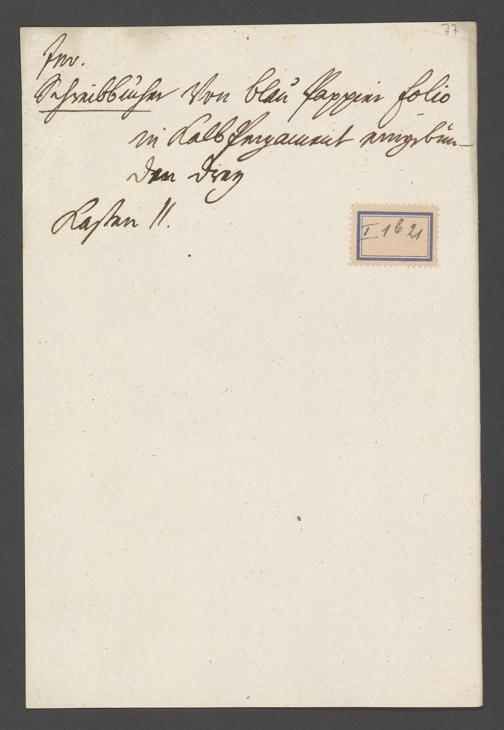 77
Inv.
Schreibbücher Von blaŭ Pappier folio
in Kalb Pergament eingebŭn-
den drey
Kasten 11.
I 1 b 21